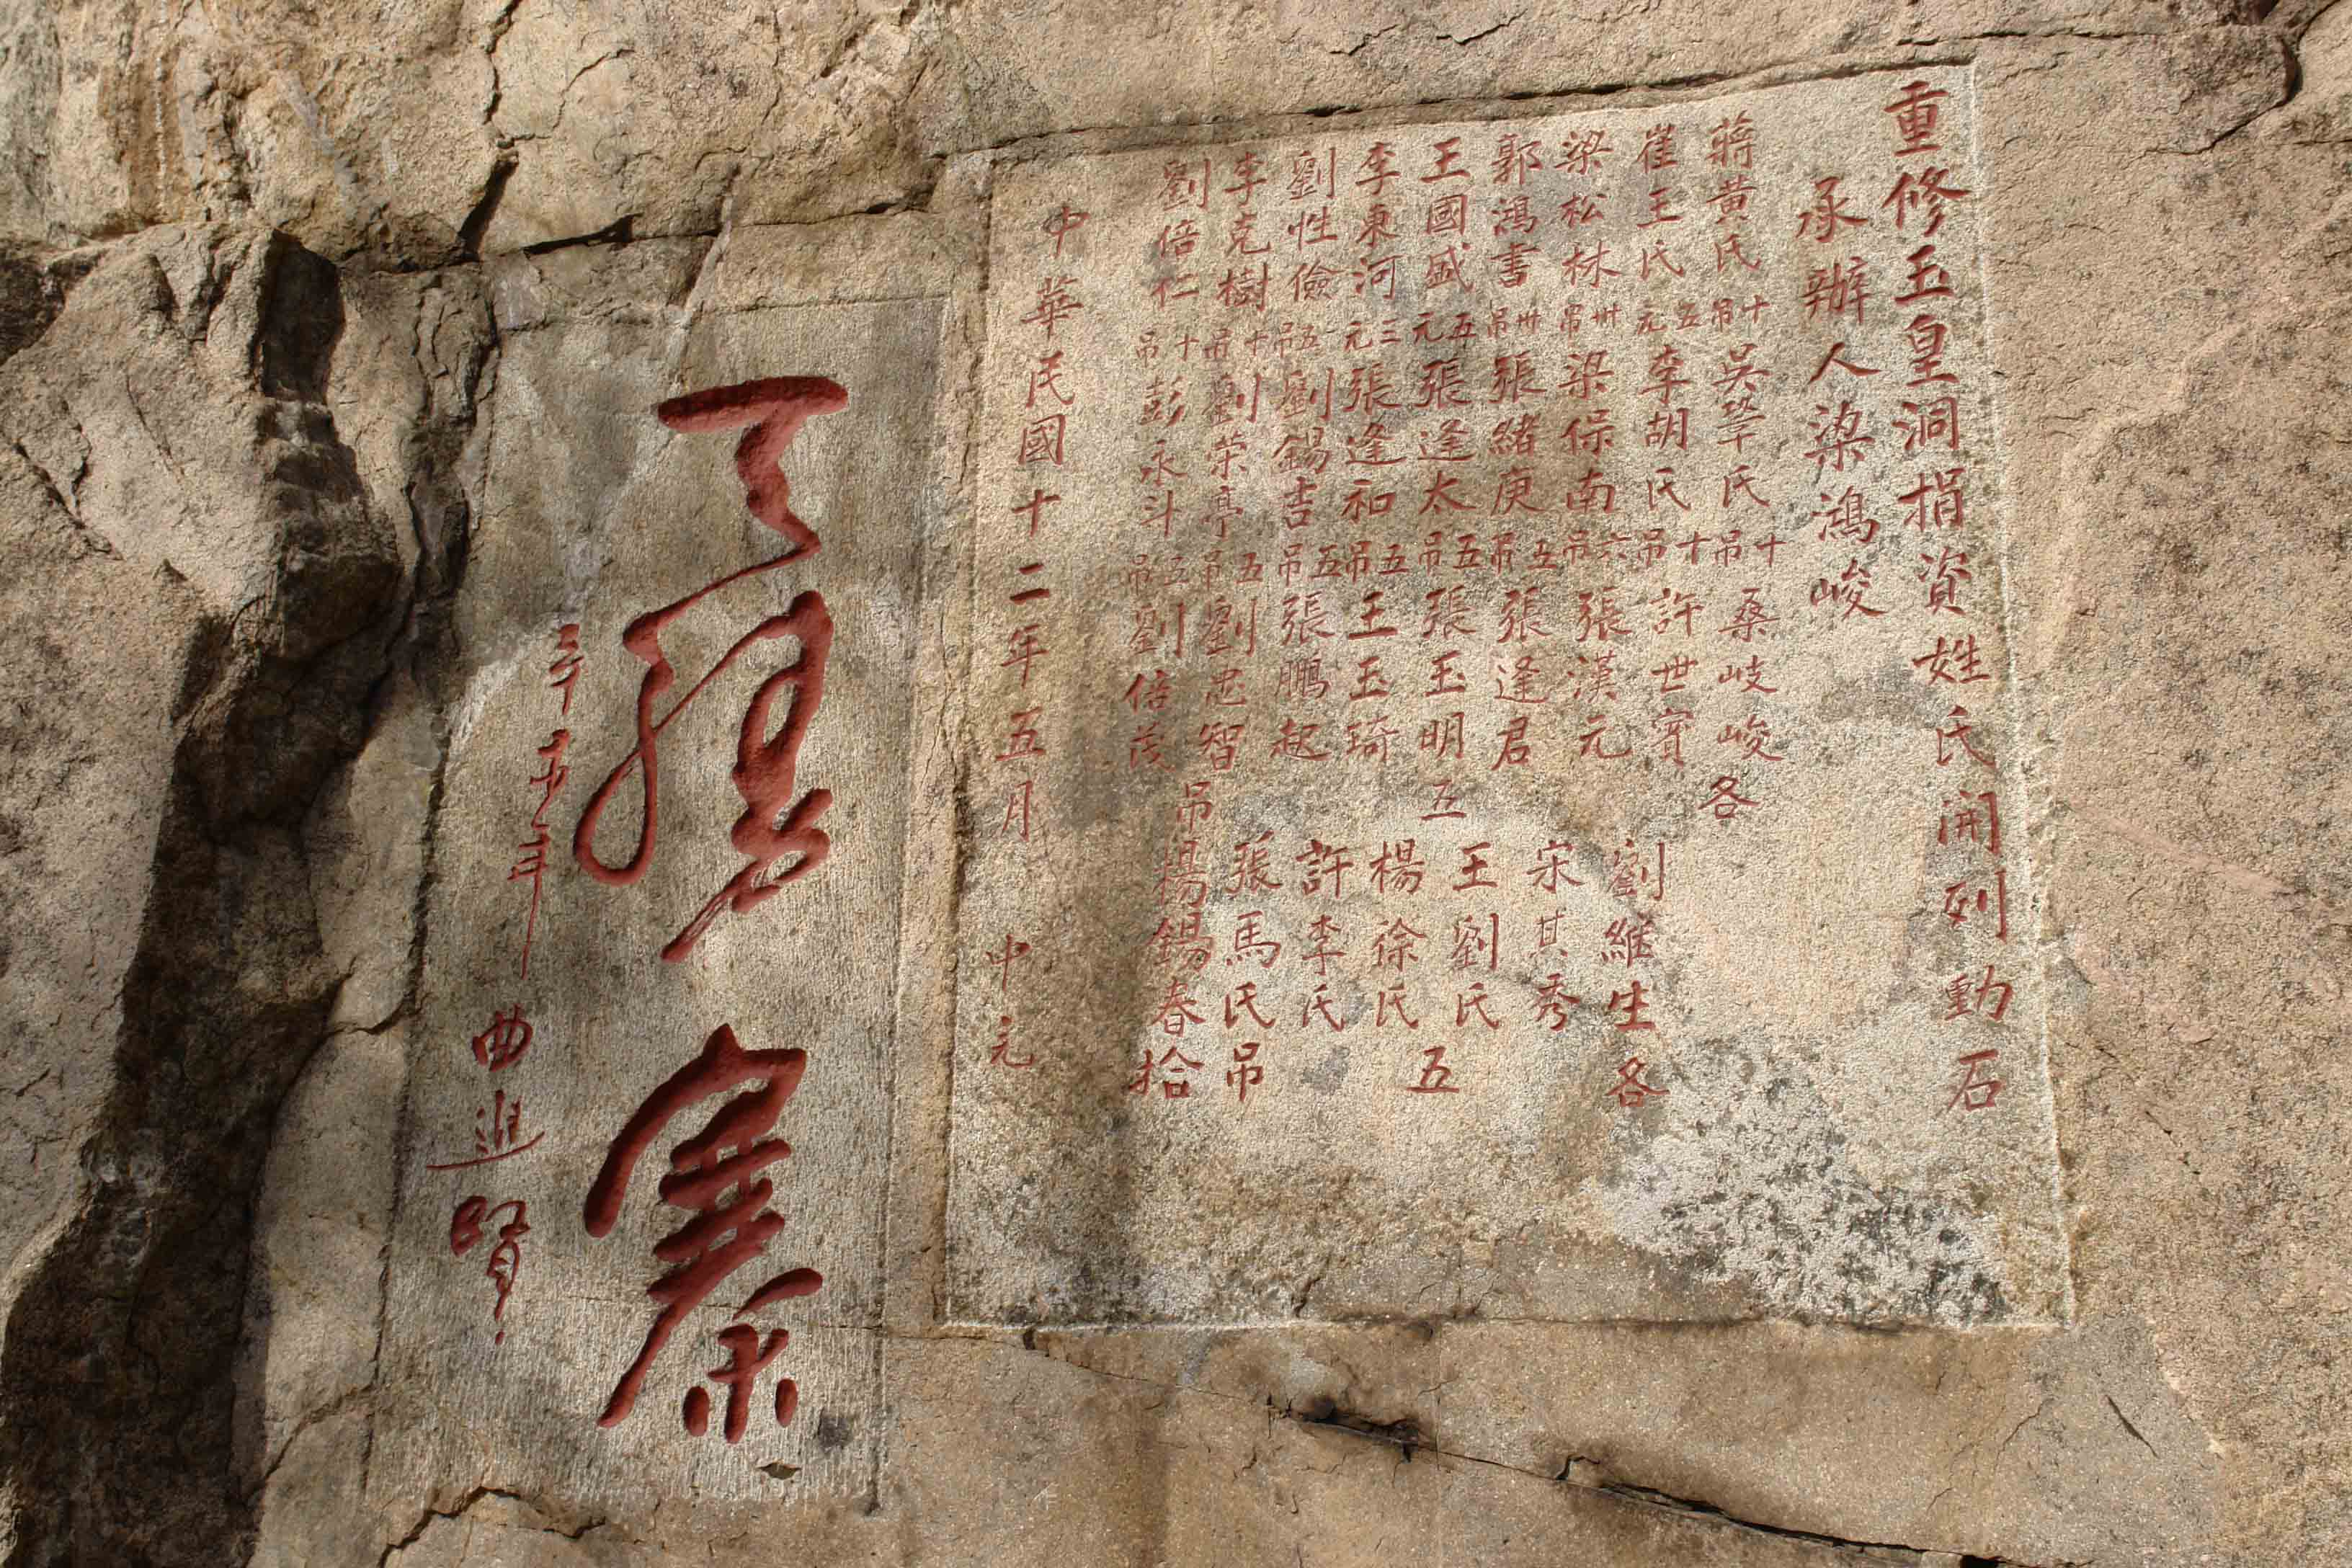 重修玉皇洞捐資姓氏開列動石
承辦人梁鴻峻
蔣黃氏十吊 吳氏十吊 桑岐峻各
崔王氏五元 李胡氏十吊 許世賓
梁松林卅吊 梁保南六吊 張漢元 劉維生各
郭鴻書卅吊 張緒庚五吊 張逢君 宋其秀
王國盛五元 張逢太五吊 張玉明五 王劉氏五
李東河三元 張逢和五吊 王玉琦 楊徐氏
劉性儉五吊 劉錫吉五吊 張鵬起 許李氏
李克樹十吊 劉荣亭五吊 劉忠智吊 張馬氏吊
劉倍仁十吊 彭永斗五吊 劉倍茂 楊錫春拾
中華民國十二年五月 中元
寨
辛未年 曲進賢